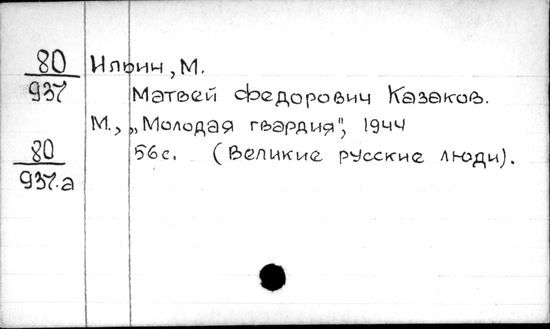 80 Ильин, М.
937 Матвей Федорович Казаков.
М., „Молодая гвардия", 1944
80 56с. (Великие русские люди).
937.а